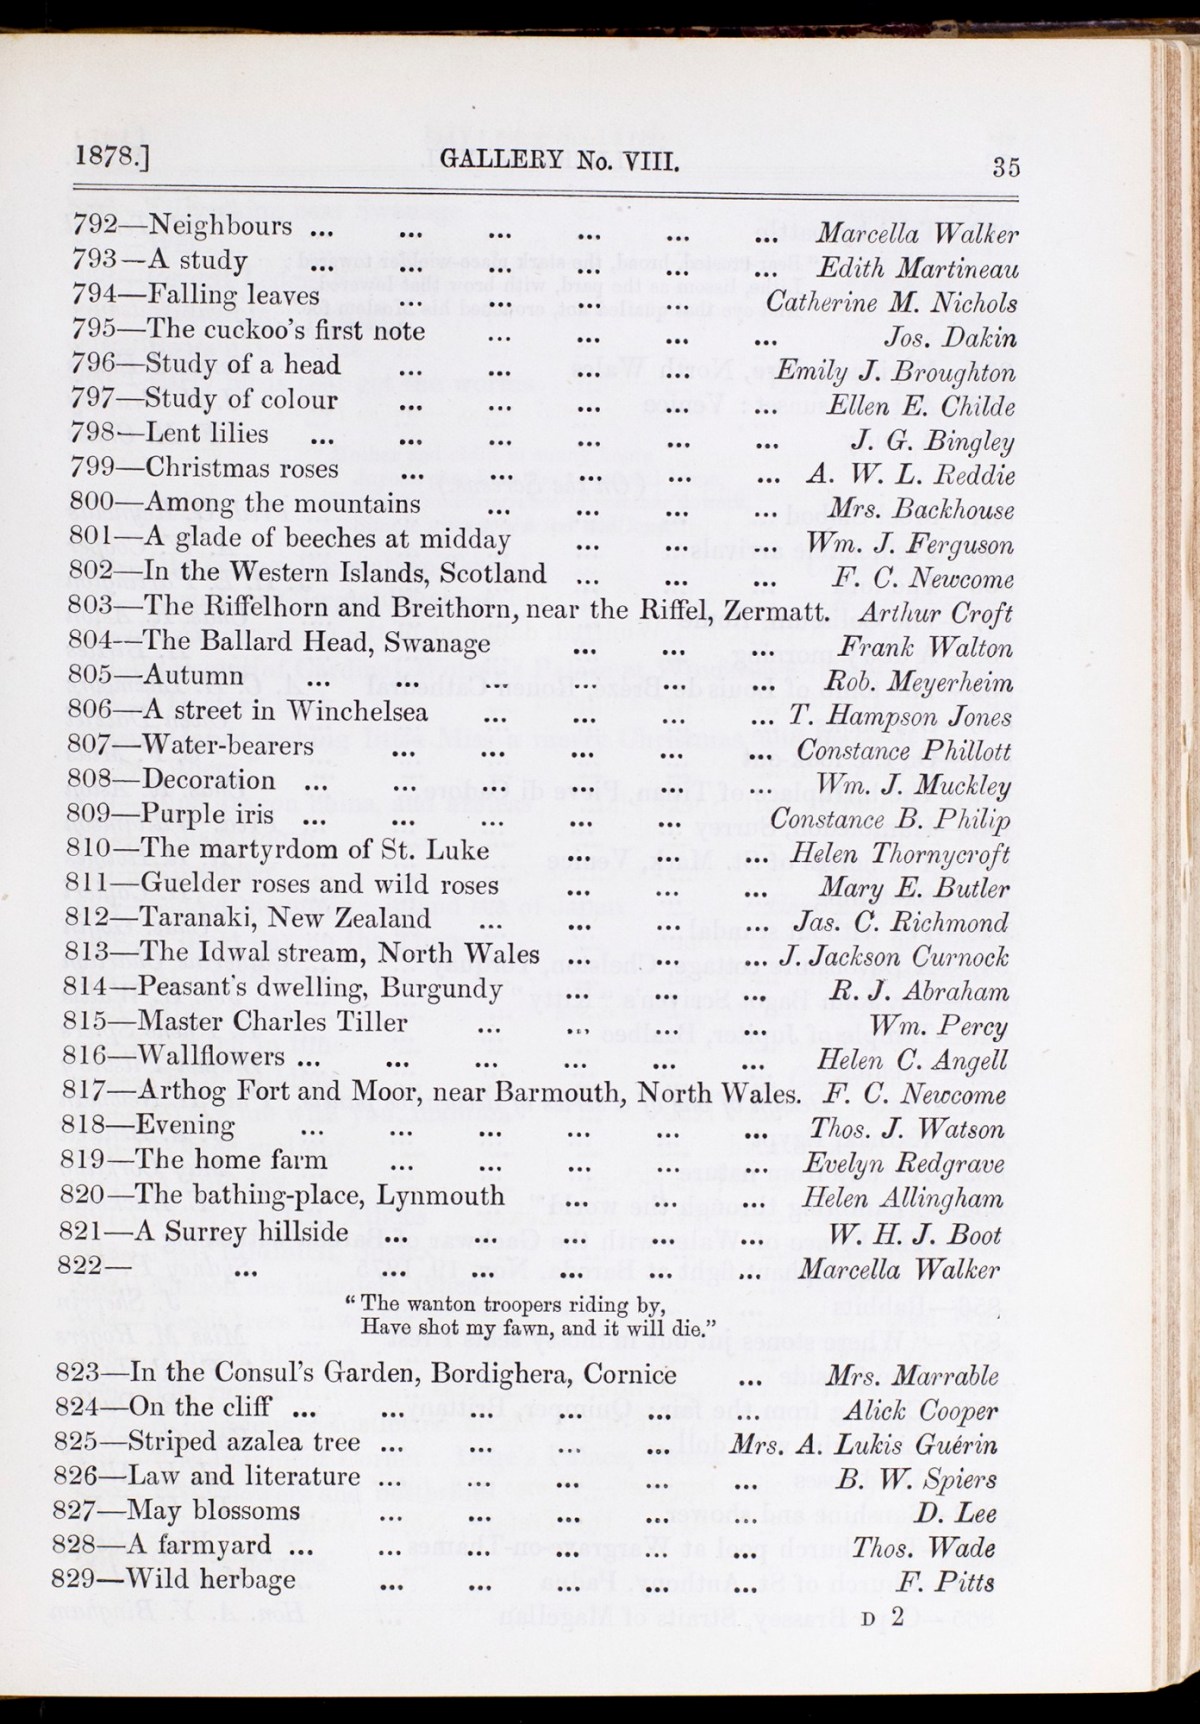 1878.] GALLERY No. VIII. 35
792—Neighbours ... ... ... ... ... ... Marcella Walker
793—A study ... ... ... ... ... Edith Martineau
794—Falling leaves ... ... ... ... Catherine M. Nichols
795—The cuckoo's first note ... ... ... ... Jos. Dakin
796—Study of a head ... ... ... ... Emily J. Broughton
797—Study of colour ... ... ... ... ... Ellen E. Childe
798—Lent lilies ... ... ... ... ... ... J. G. Bingley
799—Christmas roses ... ... ... ... ... A. W. L. Reddie
800—Among the mountains ... ... ... ... Mrs. Backhouse
801—A glade of beeches at midday ... ... ... Wm. J. Ferguson
802—In the Western Islands, Scotland ... ... ... F. C. Newcome
803—The Riffelhorn and Breithorn, near the Riffel, Zermatt. Arthur Croft
804—The Ballard Head, Swanage ... ... ... Frank Walton
805—Autumn ... ... ... ... ... Rob. Meyerheim
806—A street in Winchelsea ... ... ... ... T. Hampson Jones
807—Water-bearers ... ... ... ... ... Constance Phillott
808—Decoration ... ... ... ... ... ... Wm. J. Muckley
809—Purple iris ... ... ... ... ... Constance B. Philip
810—The martyrdom of St. Luke ... ... ... Helen Thornycroft
811—Guelder roses and wild roses ... ... ... Mary E. Butler
812—Taranaki, New Zealand ... ... ... ... Jas. C. Richmond
813—The Idwal stream, North Wales ... ... ... J. Jackson Curnock
814—Peasant's dwelling, Burgundy ... ... ... R. J. Abraham
815—Master Charles Tiller ... ... ... ... Wm. Percy
816—Wallflowers ... ... ... ... ... ... Helen C. Angell
817—Arthog Fort and Moor, near Barmouth, North Wales. F. C. Newcome
818—Evening ... ... ... ... ... ... Thos. J. Watson
819—The home farm ... ... ... ... ... Evelyn Redgrave
820—The bathing-place, Lynmouth ... ... ... Helen Allingham
821—A Surrey hillside ... ... ... ... ... W. H. J. Boot
822— ... ... ... ... ... ... Marcella Walker
"The wanton troopers riding by,
Have shot my fawn, and it will die."
823—In the Consul's Garden, Bordighera, Cornice ... Mrs. Marrable
824—On the cliff ... ... ... ... ... ... Alick Cooper
825—Striped azalea tree ... ... ... ... Mrs. A. Lukis Guérin
826—Law and literature ... ... ... ... ... B. W. Spiers
827—May blossoms ... ... ... ... ... D. Lee
828—A farmyard ... ... ... ... ... ... Thos. Wade
829—Wild herbage ... ... ... ... ... F. Pitts
D 2